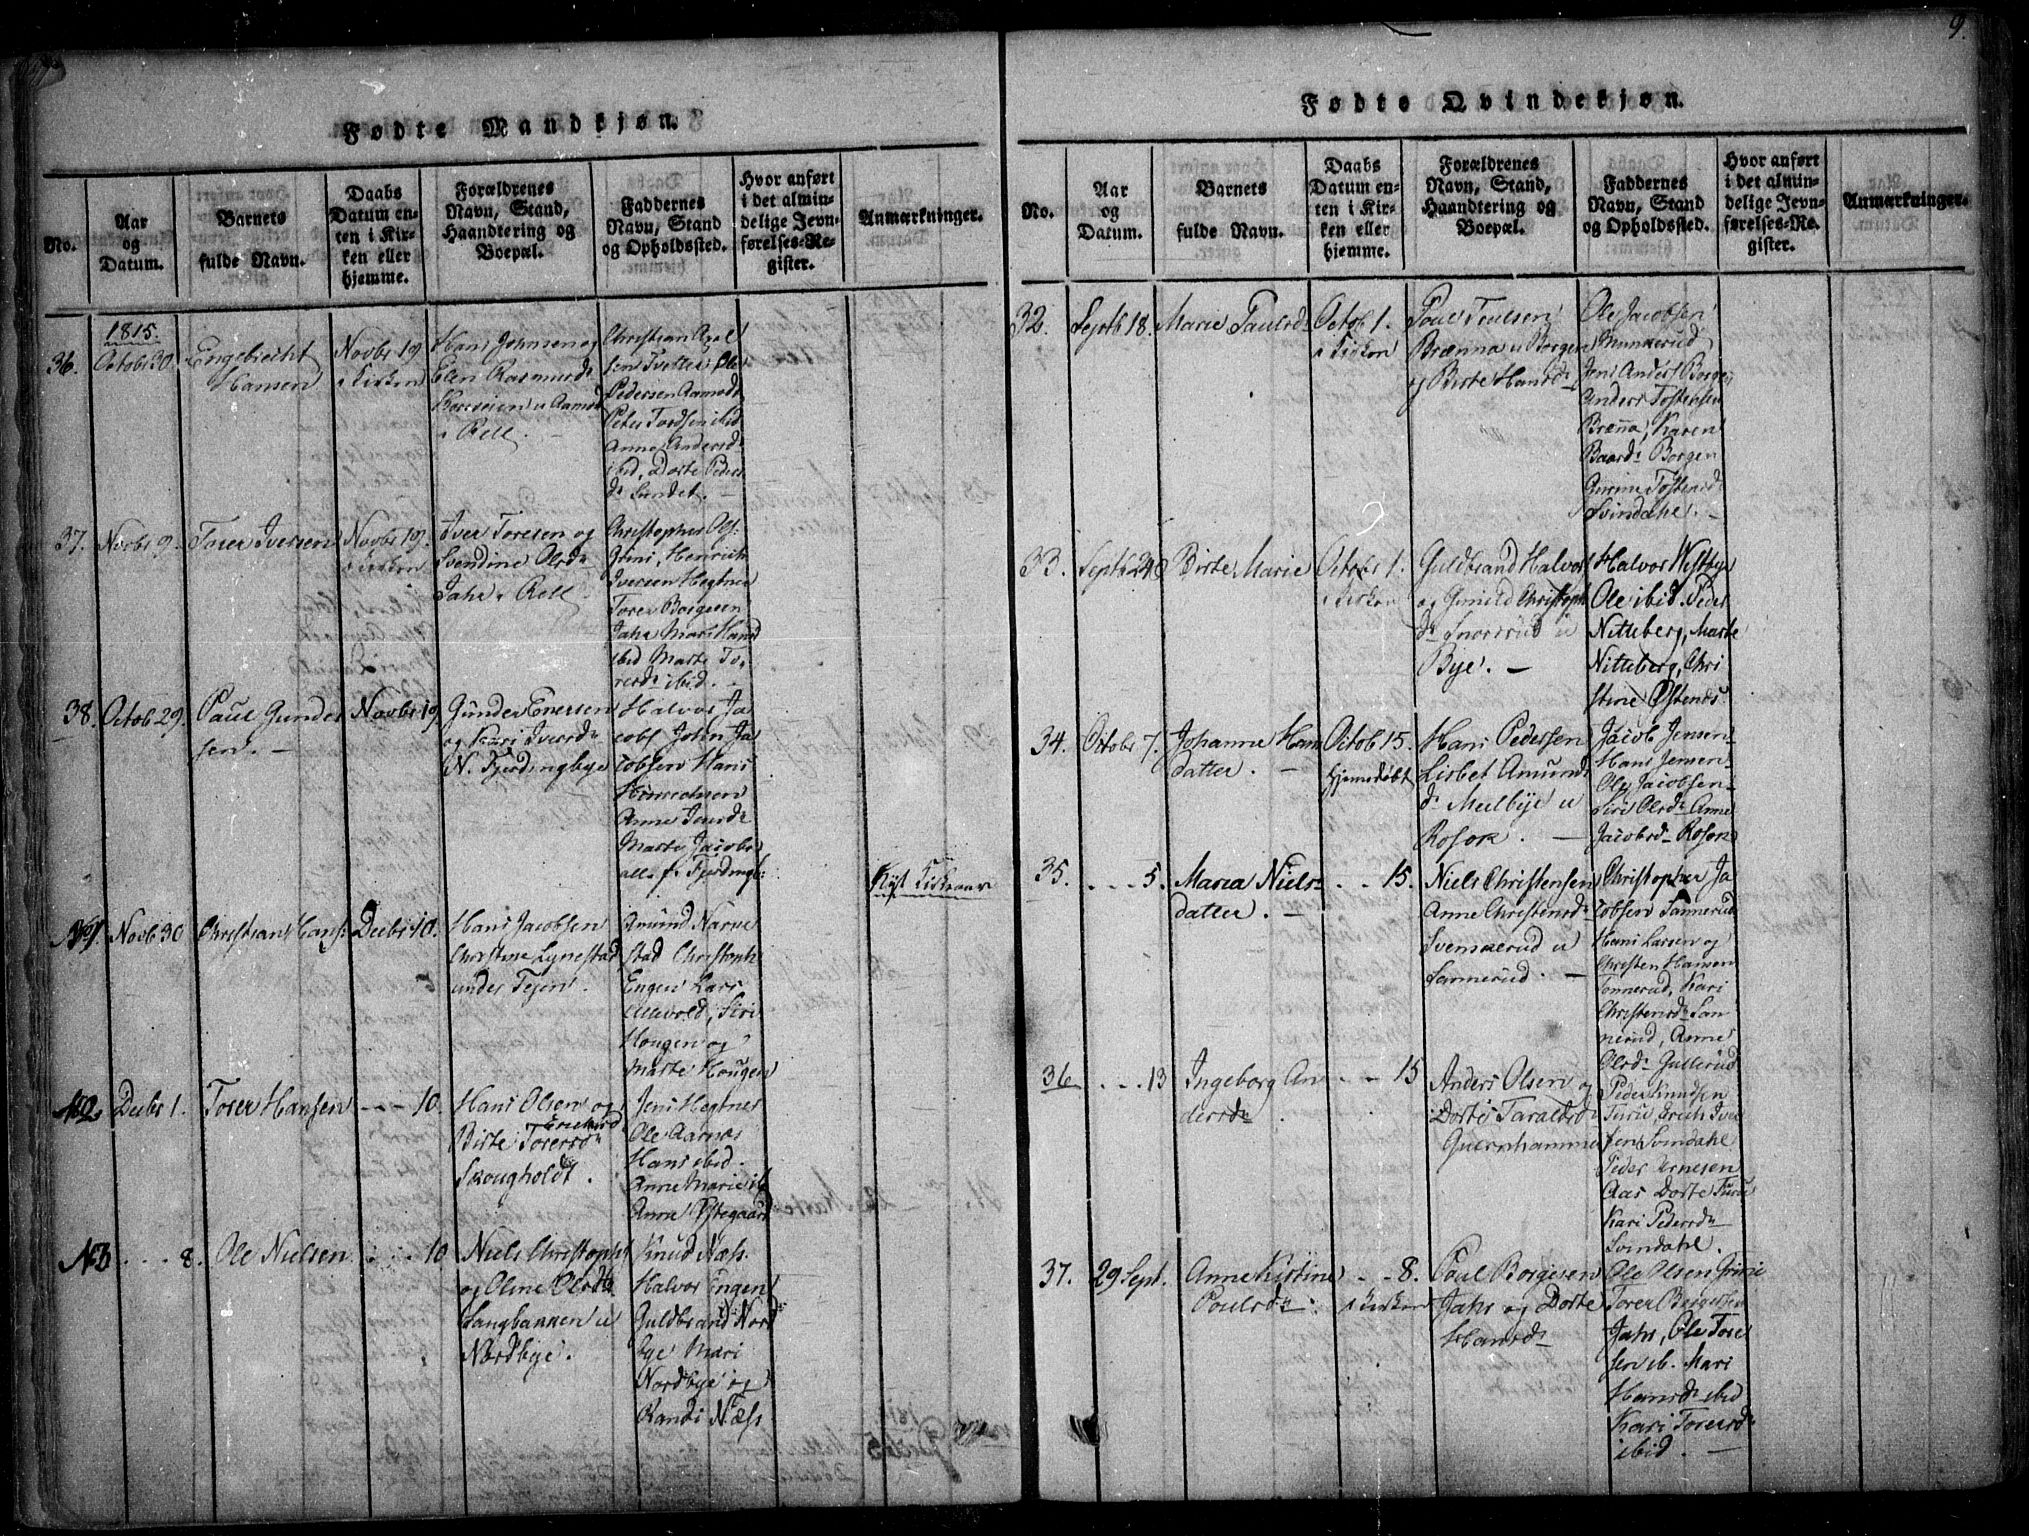 9.
Fødte Mandkjøn.
No.
Aar
og
Datum.
Barnets
fulde Navn.
Daabs
Datum en-
ten i Kir-
ken eller
hjemme.
Forældrenes
Navn, Stand,
Haandtering og
Boepæl.
Faddernes
Navn, Stand
og Opholdssted.
Hvor anført
i det almin-
delige Jevn-
førelses-Re-
gister.
Anmærkninger.
1815.
36.
Octobr 30.
Engebrecht
Hansen
Novbr 19.
i Kirken
Hans Johnsen og
Elen Rasmusd
u Aamod
i Rell.
Christian Axel
sen Tvetter Ole
Pedersen Aamodt
Peter Tordsen ibid
Anne Andersd
ibid, Dorte Peders
dr Sundet.
37.
Novbr 9.
Torer Iversen
Novbr 19.
i Kirken
Iver Toresen og
Svendine Olsdr
Jahr i Rell
Christopher Ols
Henrich
Iversen Hegtner
Torer Borgesen
Jahr Mari Hansd
ibid Marte To-
rersdr ibid.
38.
Octob 29.
Paul Gunder
sen.
Novbr 19
Gunder Enersen
og Kari Iversdr
N. Fjerdingbye
Halvor Ja
cobs John Ja
cobsen Hans
Anne Iversdr
Marte Jacobs
alle f. Fjerdingb:
Nyt Kirkeaar
No1
Novb 30
Christian Hans:
Decbr 10.
Hans Jacobsen
Christine Lynestad
under Tejen.
Amund Narve
stad Christoph
Engen Lars
Siri
Hougen og
Marte Hougen
No2
Decbr 1.
Torer Hansen
- - - 10.
Hans Olsen og
Birte Torersdr
Skougholdt.
Jens Hegtner
Ole Aarnæs
Hans ibid.
Anne Marie ib
Anne Østegaard
No3
. . . . 8.
Ole Nielsen
. . . . 10
Niels Christoph
og Oline Olsdr
Langbakken u
Nordbye.
Knud Næss.
Halvor Engen
Guldbrand Nord
bye Mari
Nordbye og
Randi Næss
Fødte Qvindekjøn.
No.
Aar
og
Datum.
Barnets
fulde Navn.
Daabs
Datum en-
ten i Kir-
ken eller
hjemme.
Forældrenes
Navn, Stand,
Haandtering og
Boepæl.
Faddernes
Navn, Stand
og Opholdssted.
Hvor anført
i det almin-
delige Jevn-
førelses-Re-
gister.
Anmærkninger.
32.
Septb 18.
Marie Paulsdr
Octob 1.
i Kirken
Poul Poulsen
Brænna u Borgen
og Birte Hansdr
Ole Jacobsen
Munkerud
Jens Anders Borgen
Anders Tostensen
Brænna, Karen
Baardsdr Borgen
Gurine Tostensdr
Svindahl.
33.
Septb 24
Birte Marie
Octobr 1.
i Kirken
Guldbrand Halvors
og Gunild Christoph
dr Snorerud u
Bye.
Halvor Westbye
Ole ibid. Peder
Nitteberg, Marte
Nitteberg, Chri
stine Østends
34.
Octobr 7.
Johanne Hans
datter.
Octob 15.
Hjemedøbt
Hans Pedersen
Lisbet Amunds
dr Melbye u
Rosok.
Jacob Jensen
Hans Jensen
Ole Jacobsen
Siri Olsdr Anne
Jacobsdr Rosok
35.
. . . 5.
Maria Niels
datter.
. . 15.
Niels Christensen
Anne Christensdr
Svenskerud u
Sannerud.
Christopher Ja
cobsen Sannerud
Hans Larsen og
Christen Hansen
Sonnerud, Kari
Christensdr San
nerud, Anne
Olsdr Gullerud
36
. . . 13
Ingeborg An
dersdr
- - 15
Anders Olsen og
Dorte Taraldsdr
Quernhammer
Peder Knudsen
Turie, Erich Iver
sen Svindahl
Peder Arnesen
Aas Dorte Turie
Kari Pedersdr
Svindahl.
37.
29 Sept.
Anne Kirstine
Poulsdr.
- - 8.
i Kirken
Poul Borgesen
Jahr og Dorte
Hansdr
Ole Olsen
Torer Borgersen
Jahr, Ole Tore
sen ib. Mari
Hansdr ibid
Kari Torersdr
ibid.